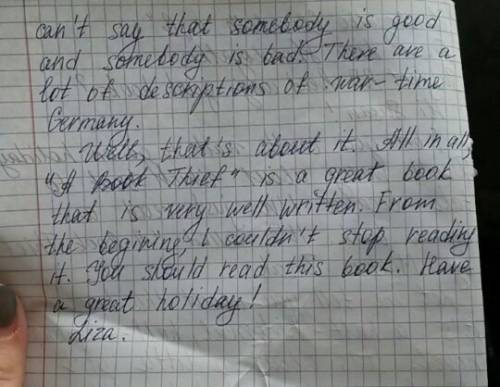 can't say that somebody is good
and somebody is bad. There are a
lot of descriptions of war-time
Germany.
Well, that's about it. All in all,
"A Book Thief" is a great book
that is very well written. From
the begining, I couldn't stop reading
it. You should read this book. Have
a great holiday!
Liza.